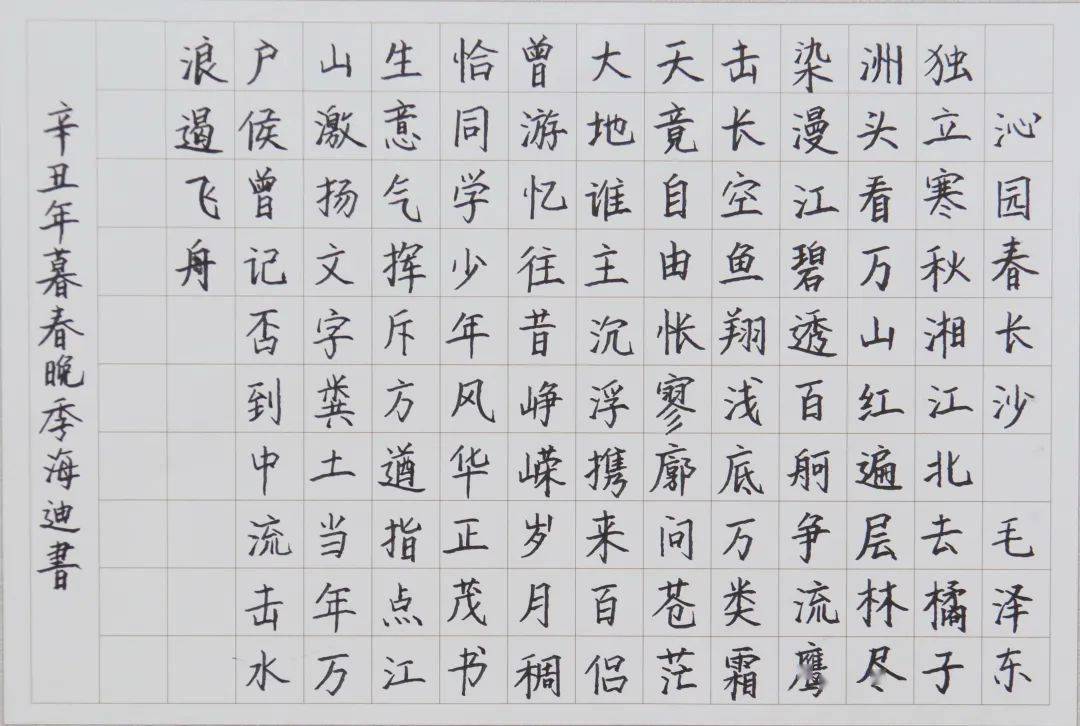 沁园春长沙 毛泽东
独立寒秋湘江北去橘子
洲头看万山红遍层林尽
染漫江碧透百舸争流鹰
击长空鱼翔浅底万类霜
天竟自由怅寥廓问苍茫
大地谁主沉浮携来百侣
曾游忆往昔峥嵘岁月稠
恰同学少年风华正茂书
生意气挥斥方遒指点江
山激扬文字粪土当年万
户侯曾记否到中流击水
浪遏飞舟
辛丑年暮春晚季海迪書